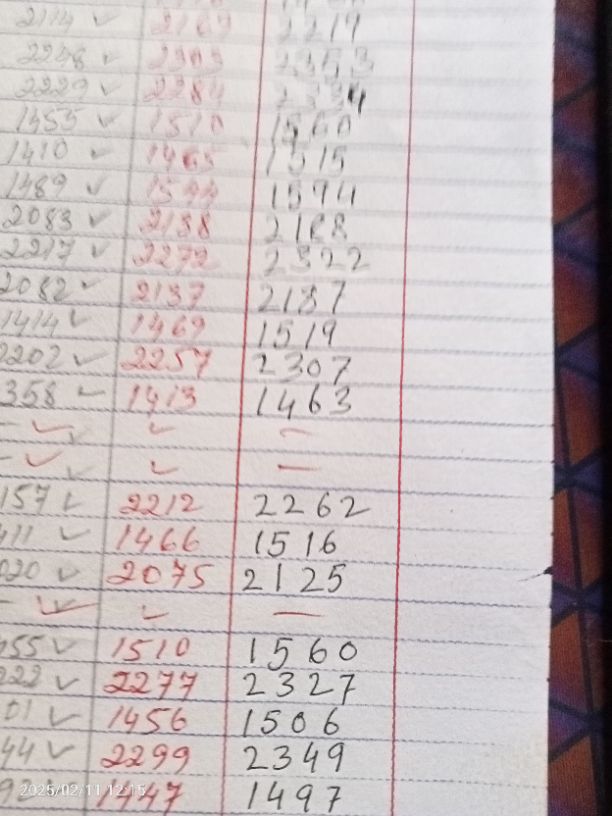 2114 ✓ 2169 2219
2248 ✓ 2303 2353
2229 ✓ 2284 2334
1455 ✓ 1510 1560
1410 ✓ 1465 1515
1489 ✓ 1544 1594
2083 ✓ 2138 2188
2217 ✓ 2272 2322
2082 ✓ 2137 2187
1414 ✓ 1469 1519
2202 ✓ 2257 2307
358 ✓ 1413 1463
- ✓ ✓ ✓ —
- ✓ ✓ ✓ —
157 ✓ 2212 2262
411 ✓ 1466 1516
020 ✓ 2075 2125
- ✓ ✓ ✓ —
455 ✓ 1510 1560
222 ✓ 2277 2327
01 ✓ 1456 1506
44 ✓ 2299 2349
92 1447 1497
2025/02/11 12:15